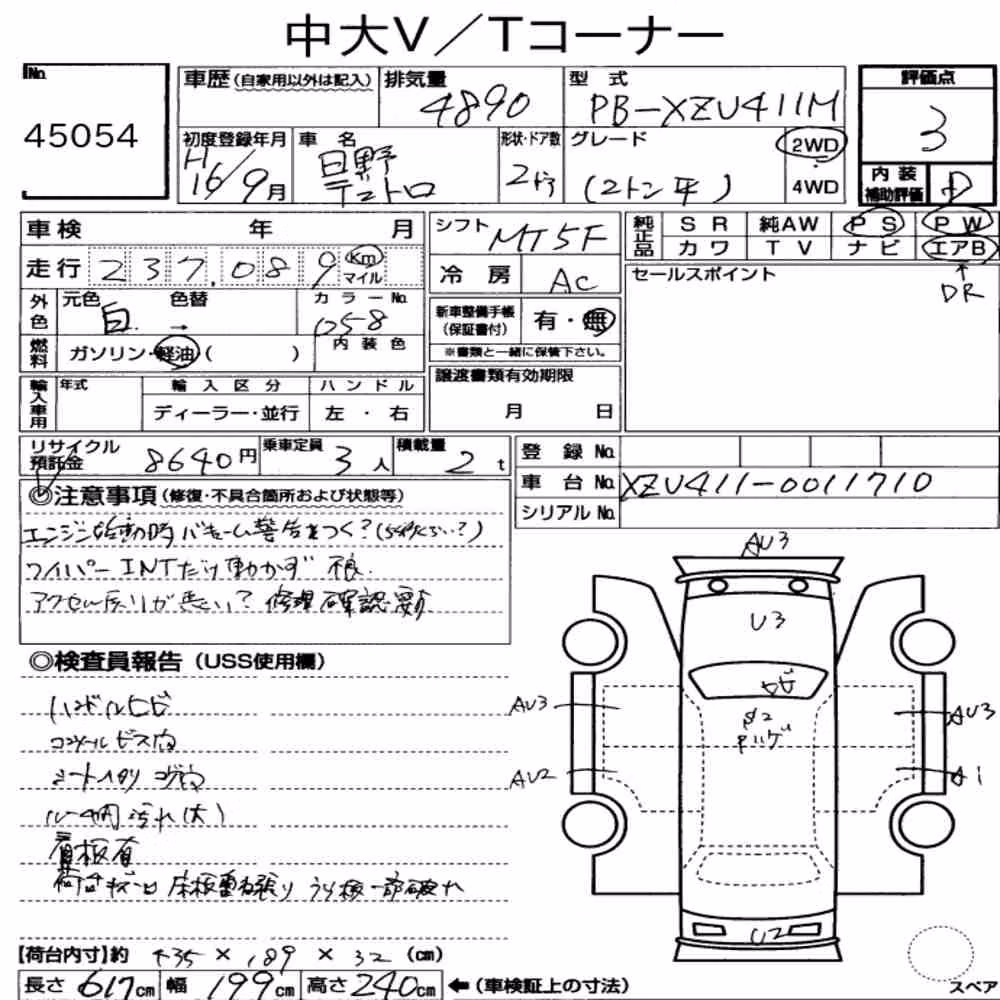 中大V／Tコーナー
No. 45054
車歴(自家用以外は記入) 排気量 4890 型式 PB-XZU411M
初度登録年月 H16/9月 車名 日野 デュトロ 形状・ドア数 2ドア グレード (2トン平) 2WD 4WD
評価点 3
内装補助評価 D
車検 年 月
走行 237,089 Km マイル
外色 元色 白 色替 → カラーNo. 058
燃料 ガソリン・軽油( ) 内装色
輸入車用 年式 輸入区分 ディーラー・並行 ハンドル 左・右
シフト MT5F
冷房 AC
新車整備手帳(保証書付) 有・無
※書類と一緒に保管下さい。
譲渡書類有効期限
月 日
純正品 SR 純AW PS PW
カワ TV ナビ エアB
DR
セールスポイント
リサイクル預託金 8640円 乗車定員 3人 積載量 2t
登録No.
車台No. XZU411-0011710
シリアルNo.
◎注意事項(修復・不具合箇所および状態等)
エンジン始動時 バキューム警告をつく?
ワイパー INTだけ動かず
アクセル戻りが悪い? 修理確認要
◎検査員報告(USS使用欄)
ハンドルヒビ
コンソールビス
シート
ルーム内汚れ(大)
看板有
床板重ね張り 一部破れ
【荷台内寸】約 435 × 189 × 32 (cm)
長さ 617cm 幅 199cm 高さ 240cm ←(車検証上の寸法)
AU3
U3
ヒビ
AU3
AU3
AU2
A1
U2
スペア